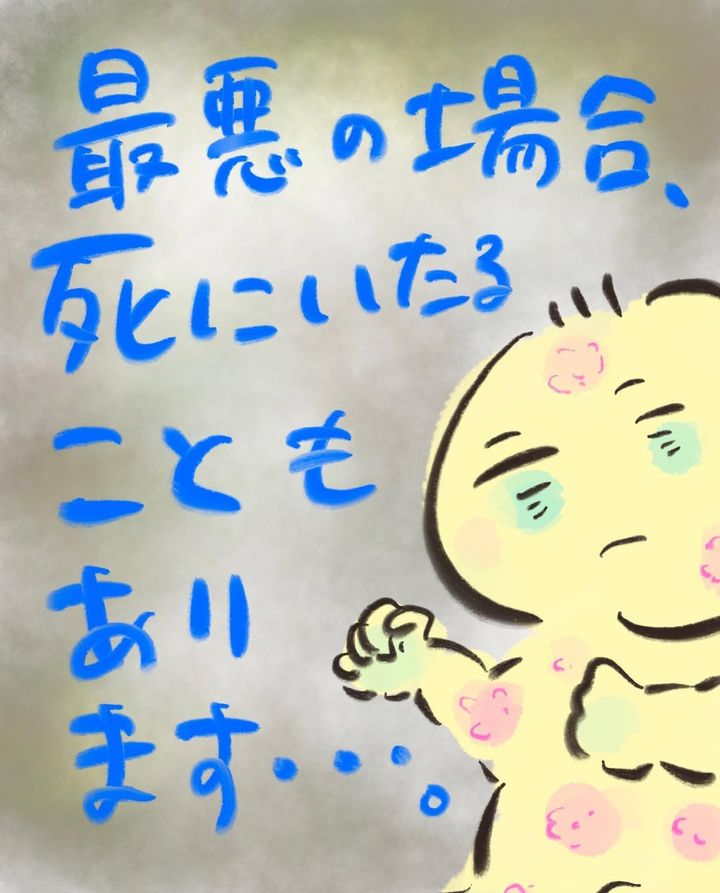 最悪の場合、
死にいたる
ことも
あり
ます・・・。